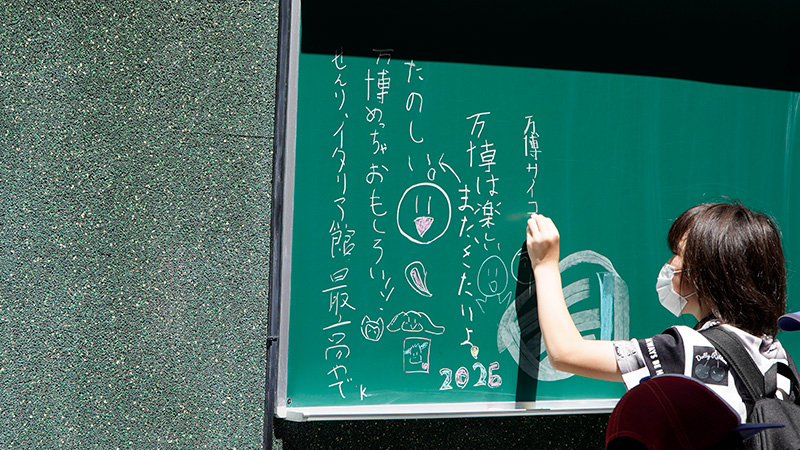 万博サイコ
万博は楽しい
またきたいよ
たのしい
万博めっちゃおもろい!!
せんり、イタリア館最高やで
K
2025